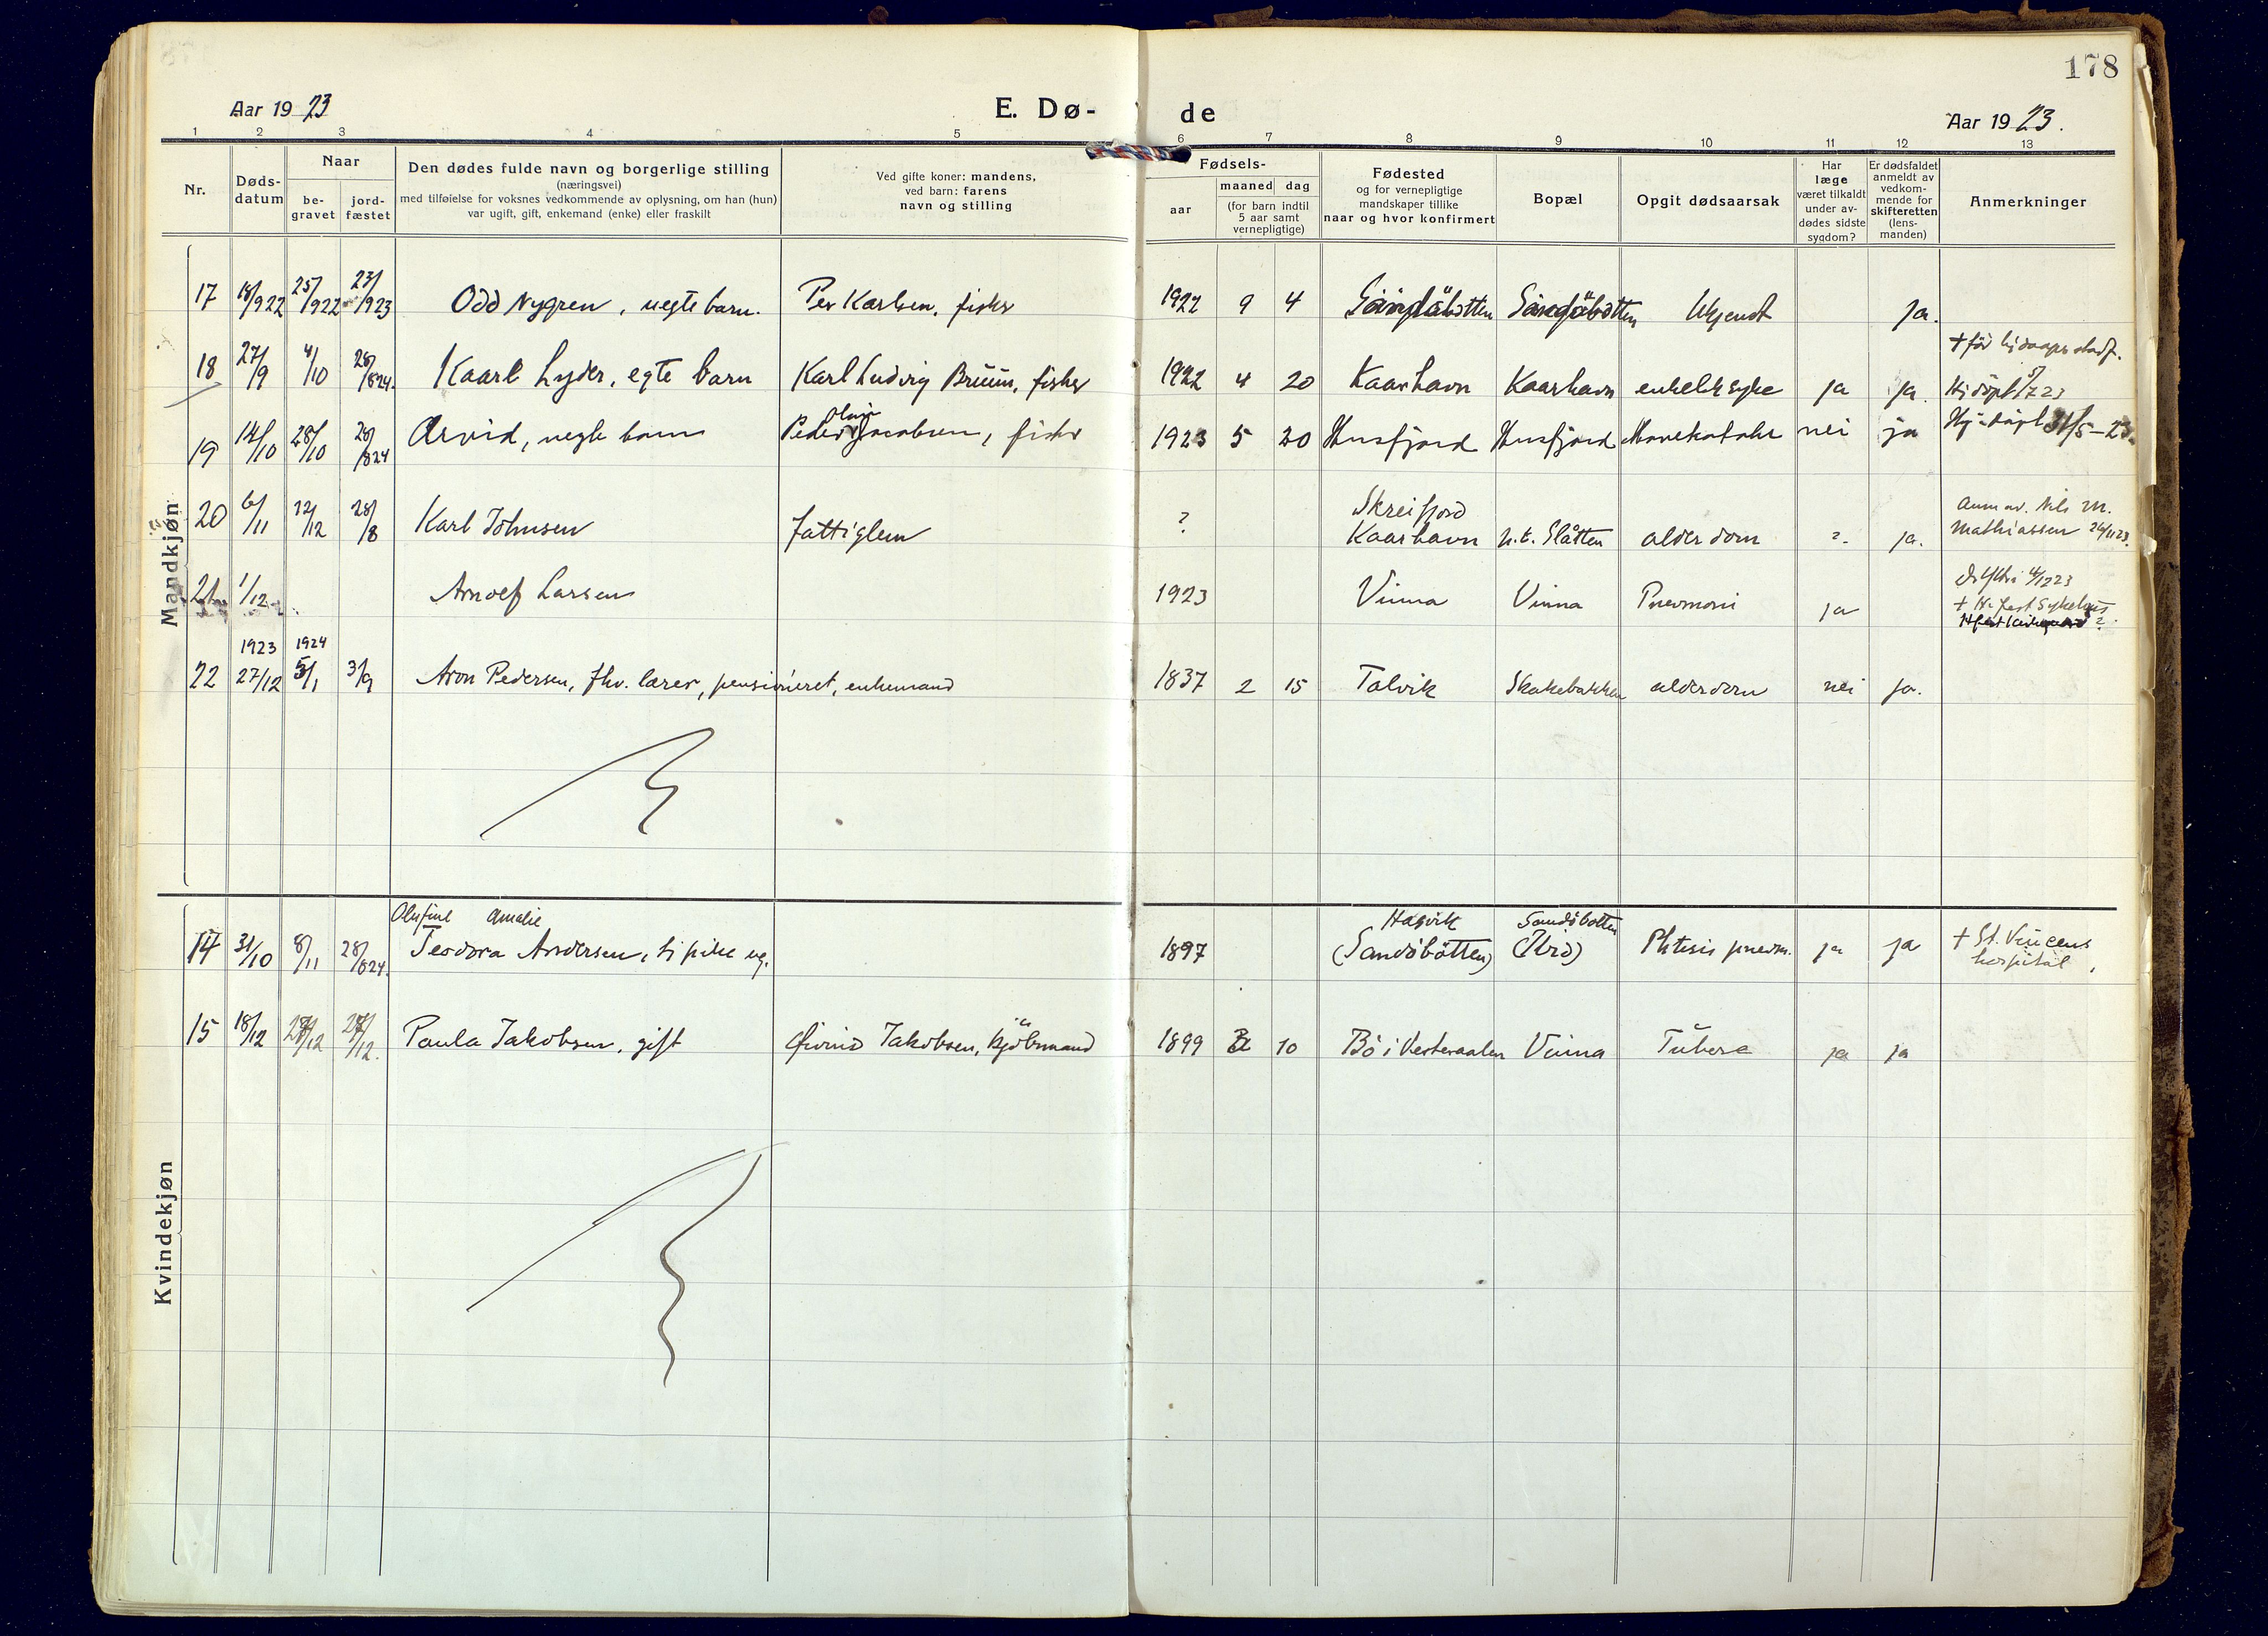 178
Aar 1923
E. Dø-
de
Aar 1923.
1 2 3 4 5 6 7 8 9 10 11 12 13
Nr.
Døds-
datum
Naar
be-
gravet
jord-
fæstet
Den dødes fulde navn og borgerlige stilling
(næringsvei)
med tilføielse for voksnes vedkommende av oplysning, om han (hun)
var ugift, gift, enkemand (enke) eller fraskilt
Ved gifte koner: mandens,
ved barn: farens
navn og stilling
Fødsels-
aar
maaned dag
(for barn indtil
5 aar samt
vernepligtige)
Fødested
og for vernepligtige
mandskaper tillike
naar og hvor konfirmert
Bopæl
Opgit dødsaarsak
Har
læge
været tilkaldt
under av-
dødes sidste
sygdom?
Er dødsfaldet
anmeldt av
vedkom-
mende for
skifteretten
(lens-
manden)
Anmerkninger
Mandkjøn
17 18/922 25/922 23/1923 Odd Nygren, uegte barn. Per Karlsen, fisker 1922 9 4 Sandöbotten Sandöbotten Ukjendt Ja.
18 27/9 4/10 28/824. Kaarl Lyder, egte barn Karl Ludvig Bruun, fisker 1922 4 20 Kaarhavn Kaarhavn engelsk syke ja ja. Hjdöpt 5/7 23
19 14/10 28/10 28/824 Arvid, uegte barn Peder Olup Jacobsen, fisker 1923 5 20 Husfjord Husfjord Mavekatahr nei ja Hj.döpt 31/5-23.
Skreifjord
20 6/11 12/12 28/8 Karl Johnsen fattiglem ? Kaarhavn p.t. Slåtten alderdom ?. ja.
Anm av. Nils M.
Mathiassen 26/1123.
21 1/12 Arnolf Larsen 1923 Vinna Vinna Pnevmoni ja
4/1223
+ H. fest Sykehus
1923 1924
22 27/12 5/1 3/9 Aron Pedersen, fhv. lærer, pensioneret, enkemand 1837 2 15 Talvik Skakebakken alderdom nei ja.
Kvindekjøn
Olufine Amalie
Hasvik Sandöbotten
14 31/10 8/11 28/824. Teodora Andersen, tj pike ug. 1897 (Sandöbotten) Phtisis pnevm. ja ja + St. Vincens
hospital.
15 18/12 27/12 27/12. Paula Jakobsen, gift Øivind Jakobsen, kjöbmand 1899 2 10 Bö i Vesteraalen Vinna Tuberc ja ja